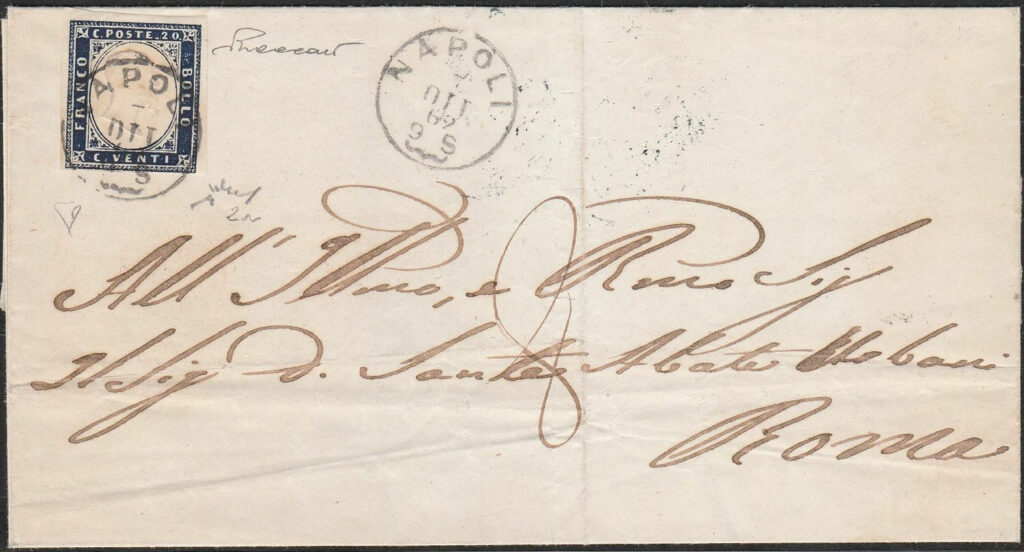 C. POSTE. 20.
FRANCO
BOLLO
C. VENTI.
APOL
OTT
S
NAPOLI
OTT
62
9 S
All' Illmo, e Rmo Sig
Il Sig D. Sante Abate Urbani
Roma
8